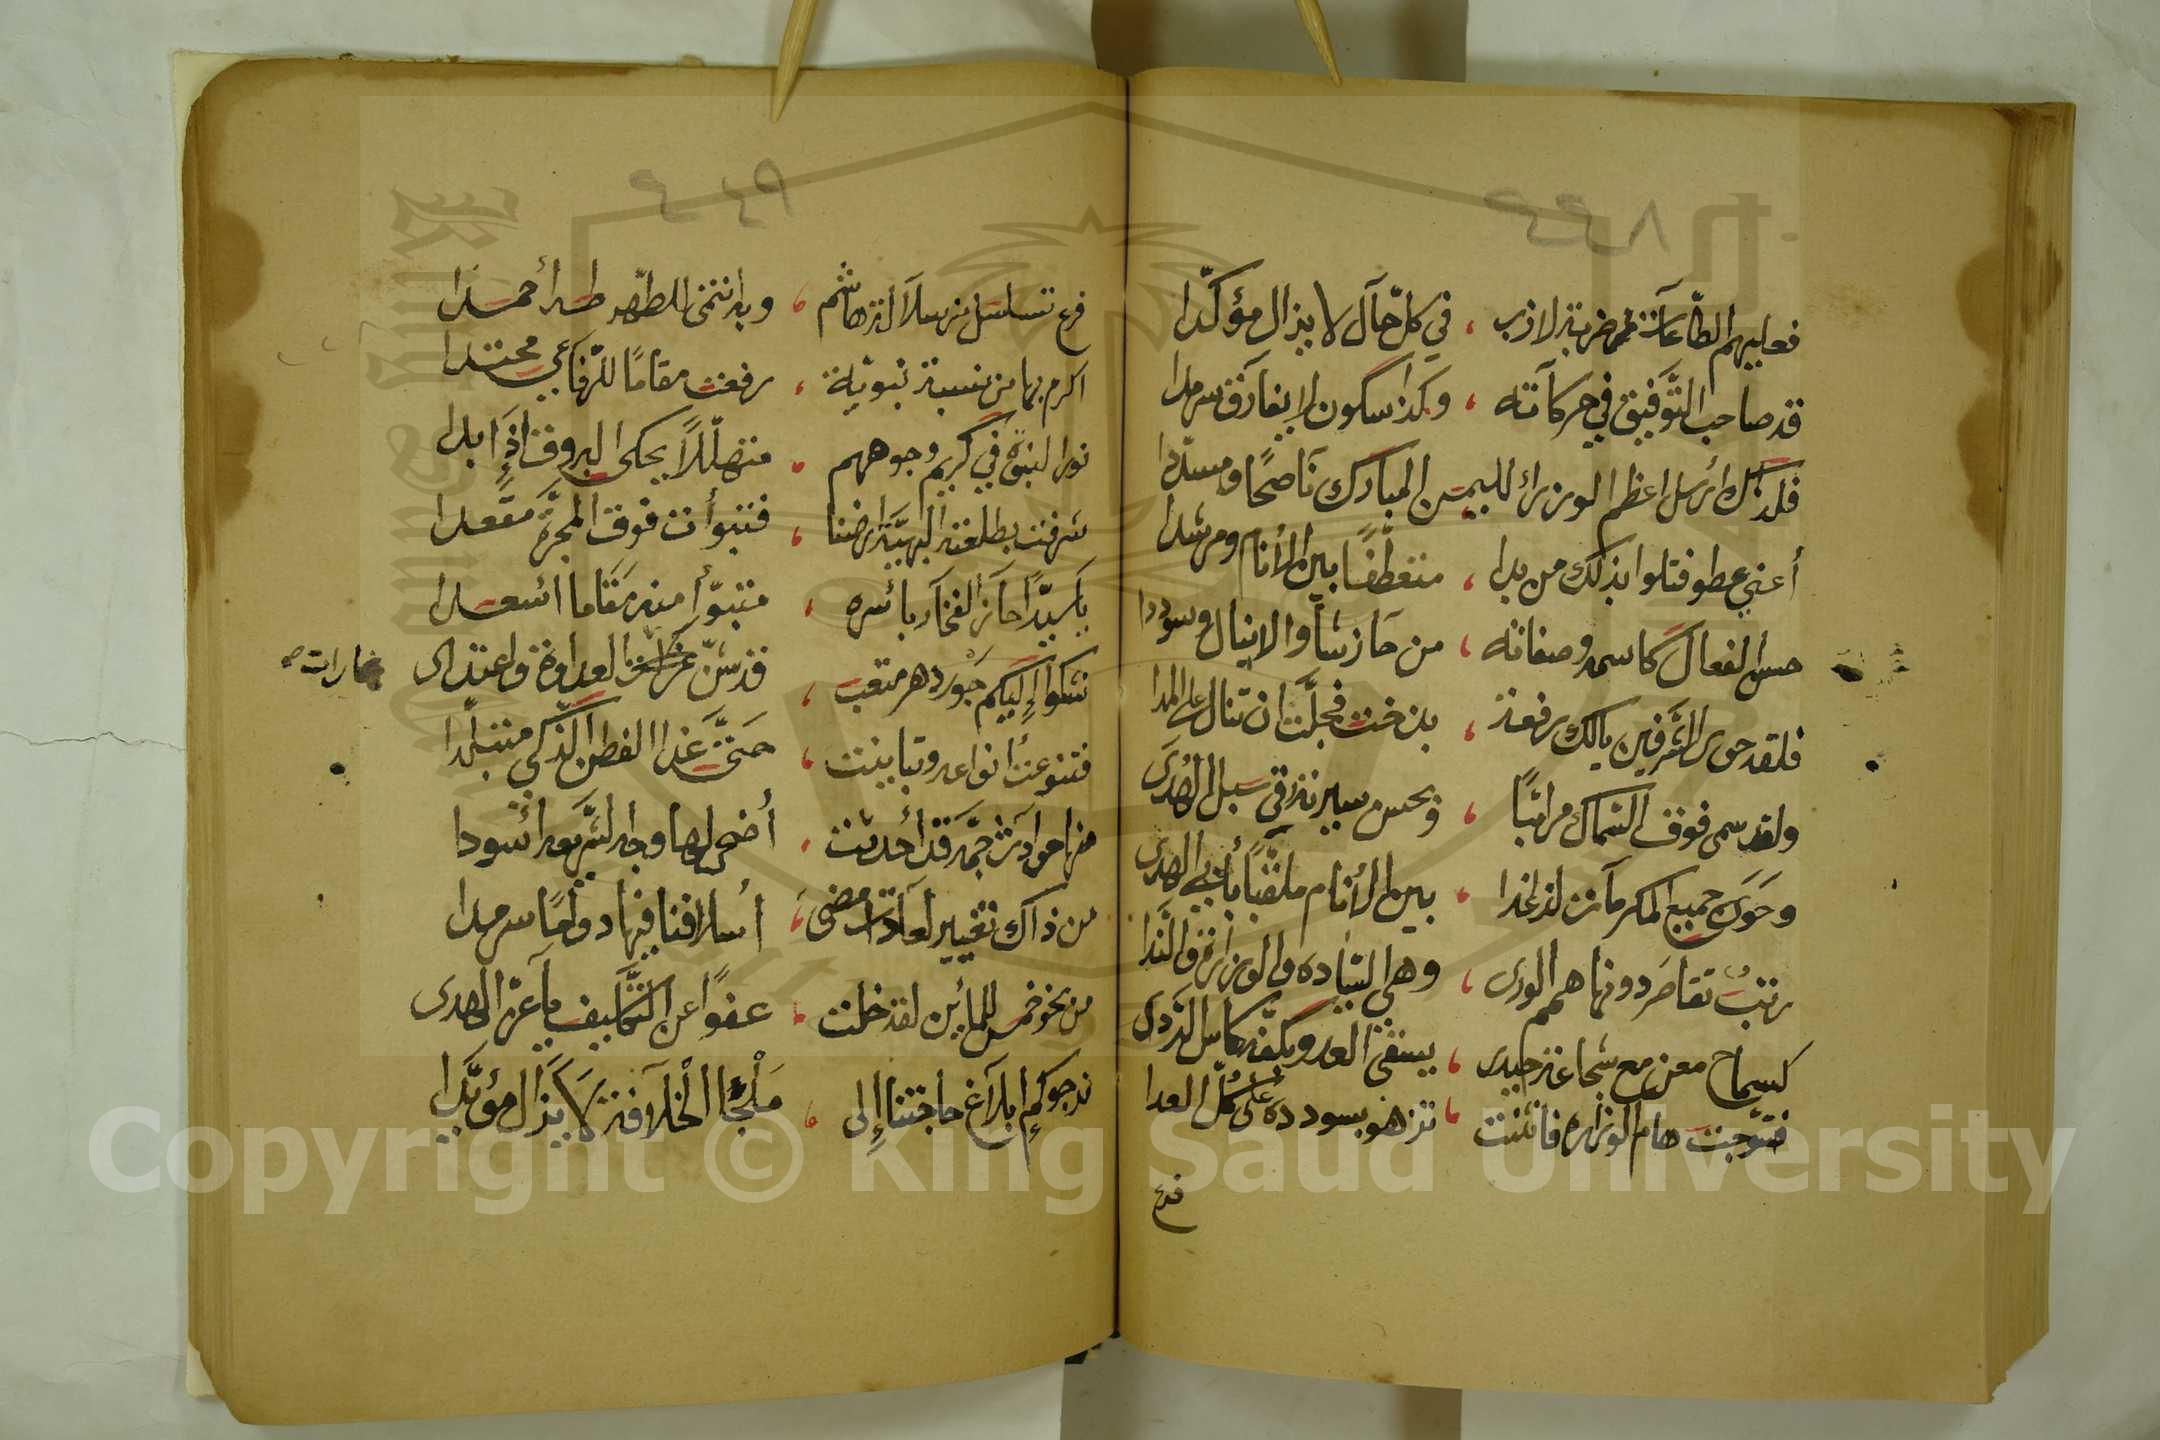 فعليهم الطّاعات ضربة لازب ، في كلّ حآل لا يزال مؤكّدا
قد صاحب التّوفيق في حركآته ، وكذا سكون لا يفارق سرمدا
فلذاك أرسل اعظم الوزرا لليمن المبارك نآصحًا ومسدّدا
أعني عطوفتلوا بذلك من بدا ، متعطّفًا بين الأنام ومرشدا
حسن الفعال كاسمه وصفاته ، من حآز شأوا لاينال وسوددا
فلقد حوى الشّرفين يالك رفعة ، بذخت فجلّت ان تنال على المدا
ولقد سمى فوف السّماك مراتبًا ، وبحسن سيرته رقى سبل الهُدَى
وحَوَى جميع المكرمآت لذا غدا ، بين الأنام ملقّبًا بأبي الهدى
رتبٌ تقاصَر دونها همم الورى ، وهي السّياده والوزارة والنَّدا
كسماح معن مع شجاعة حيدر ، يسقى العدو بكفّه كاس الرّدى
فتتوّجت هام الوزاره فانثنت ، تزهو بسودده على كلّ العدا
فرع
فرع تسلسل من سلالة هاشم ، وبه انتمى للطّهر طه أحمدا
اكرم بها من نسبة نبويّة ، رفعت مقامًا للرّفاعي محتدا
نور النبوّة في كريم وجوههم ، متهلّلاً يحكى البروق اذا بدا
شرفت بطلعته البهيّة ارضنا ، فتبوأت فوق المجرّة مقعدا
يا سيّدًا حآز الفخآر بأسره ، متبوّأ منه مقاما اسعدا
نشكوا إليكم جَوْر دهر متعب ، قد شنّ غارات العداوة واعتدى
غارات صح
فتنوعت انواعه وتباينت ، حتّى غدا الفطن الذّكي متبلّدا
منها حوادث جمّة قد أحدثت ، أضحى لها وجه الشّريعه اسودا
من ذاك تغيير لعآدات مضى ، أسلافنا فيها دوامًا سرمدا
من نحو خمس للمأين لقد خلت ، عفوًا عن التّكآليف يآ عزّ الهدى
نرجوكم إبلآغ حاجتنا إلى ، مَلْجَأ الْخلآفة لا يَزَال مؤيّدا
٢٤٨
٢٤٩
Copyright © King Saud University